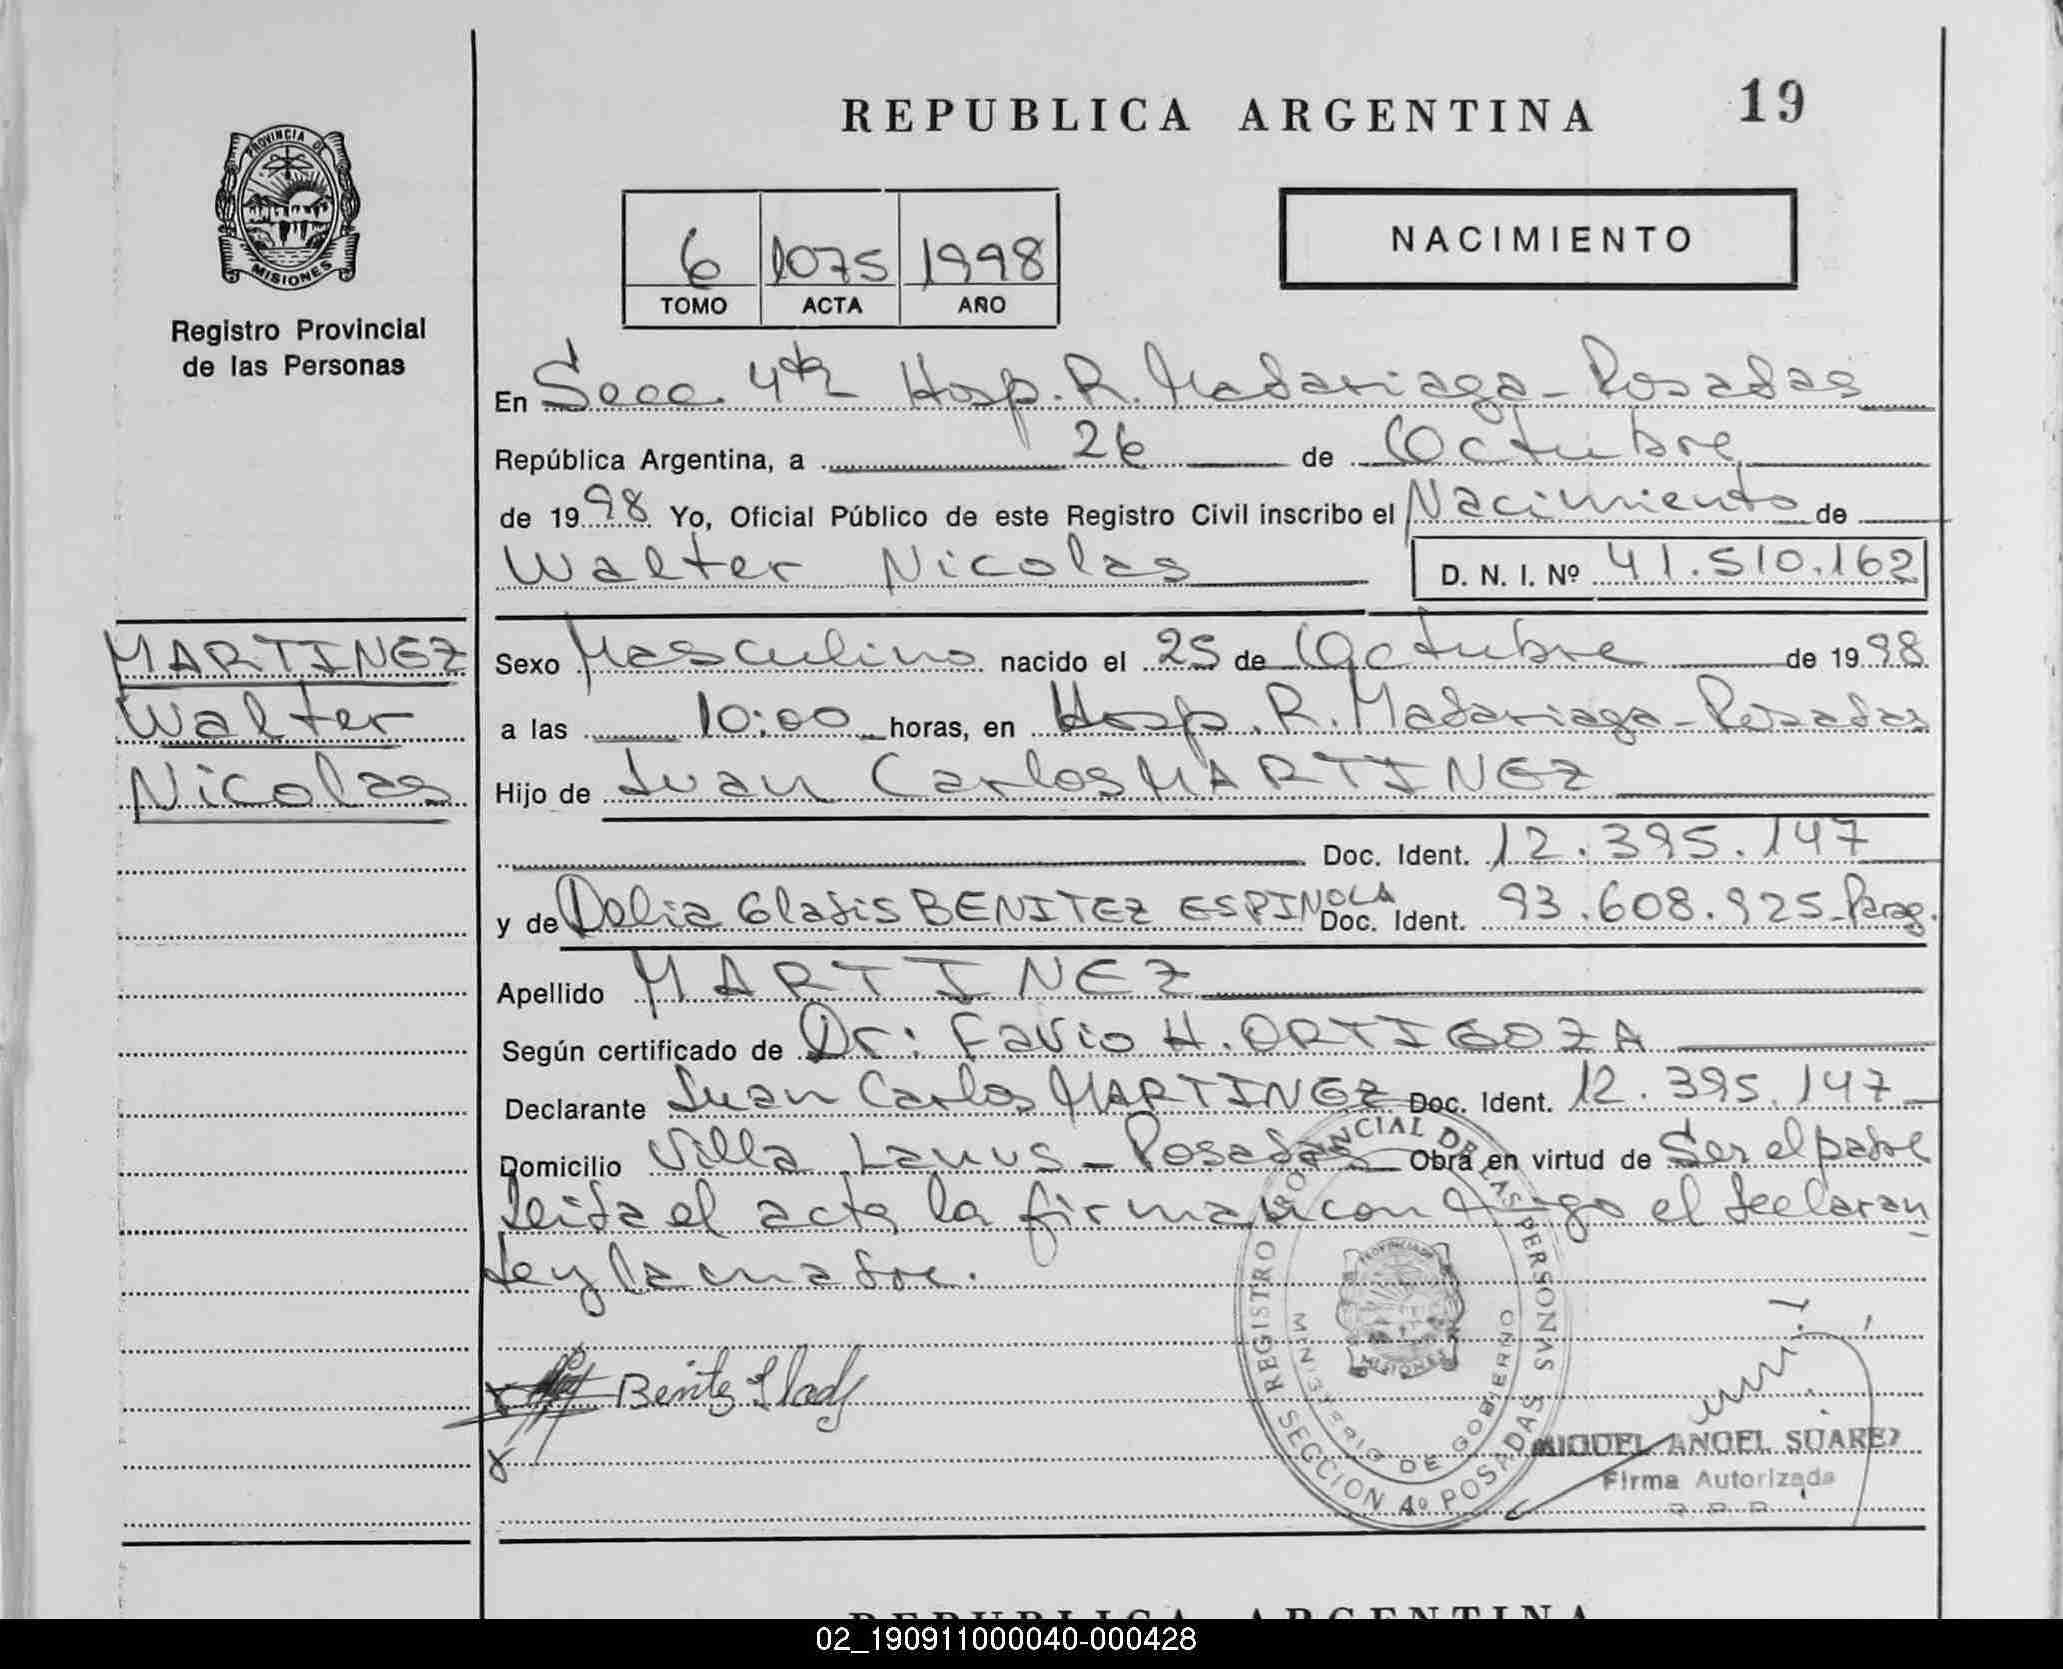 REPUBLICA ARGENTINA 19
PROVINCIA DE
MISIONES
Registro Provincial
de las Personas
6 1075 1998
TOMO ACTA AÑO
NACIMIENTO
En Secc. 4ta Hosp. R. Madariaga - Posadas
República Argentina, a 26 de Octubre
de 1998 Yo, Oficial Público de este Registro Civil inscribo el Nacimiento de
Walter Nicolas D. N. I. Nº 41.510.162
MARTINEZ
Walter
Nicolas
Sexo Masculino nacido el 25 de Octubre de 1998
a las 10:00 horas, en Hosp. R. Madariaga - Posadas
Hijo de Juan Carlos MARTINEZ
Doc. Ident. 12.395.147
y de Delia Gladis BENITEZ ESPINOLA Doc. Ident. 93.608.925 - Parag.
Apellido MARTINEZ
Según certificado de Dr: Favio H. ORTIGOZA
Declarante Juan Carlos MARTINEZ Doc. Ident. 12.395.147
Domicilio Villa Lanus - Posadas Obra en virtud de Ser el padre
leida el acta la firman con migo el declaran
te y la madre.
Benitez Gladys
REGISTRO PROVINCIAL DE LAS PERSONAS
MINISTERIO DE GOBIERNO
SECCION 4º POSADAS
MISIONES
MIGUEL ANGEL SUAREZ
Firma Autorizada
REPUBLICA ARGENTINA
02_190911000040-000428